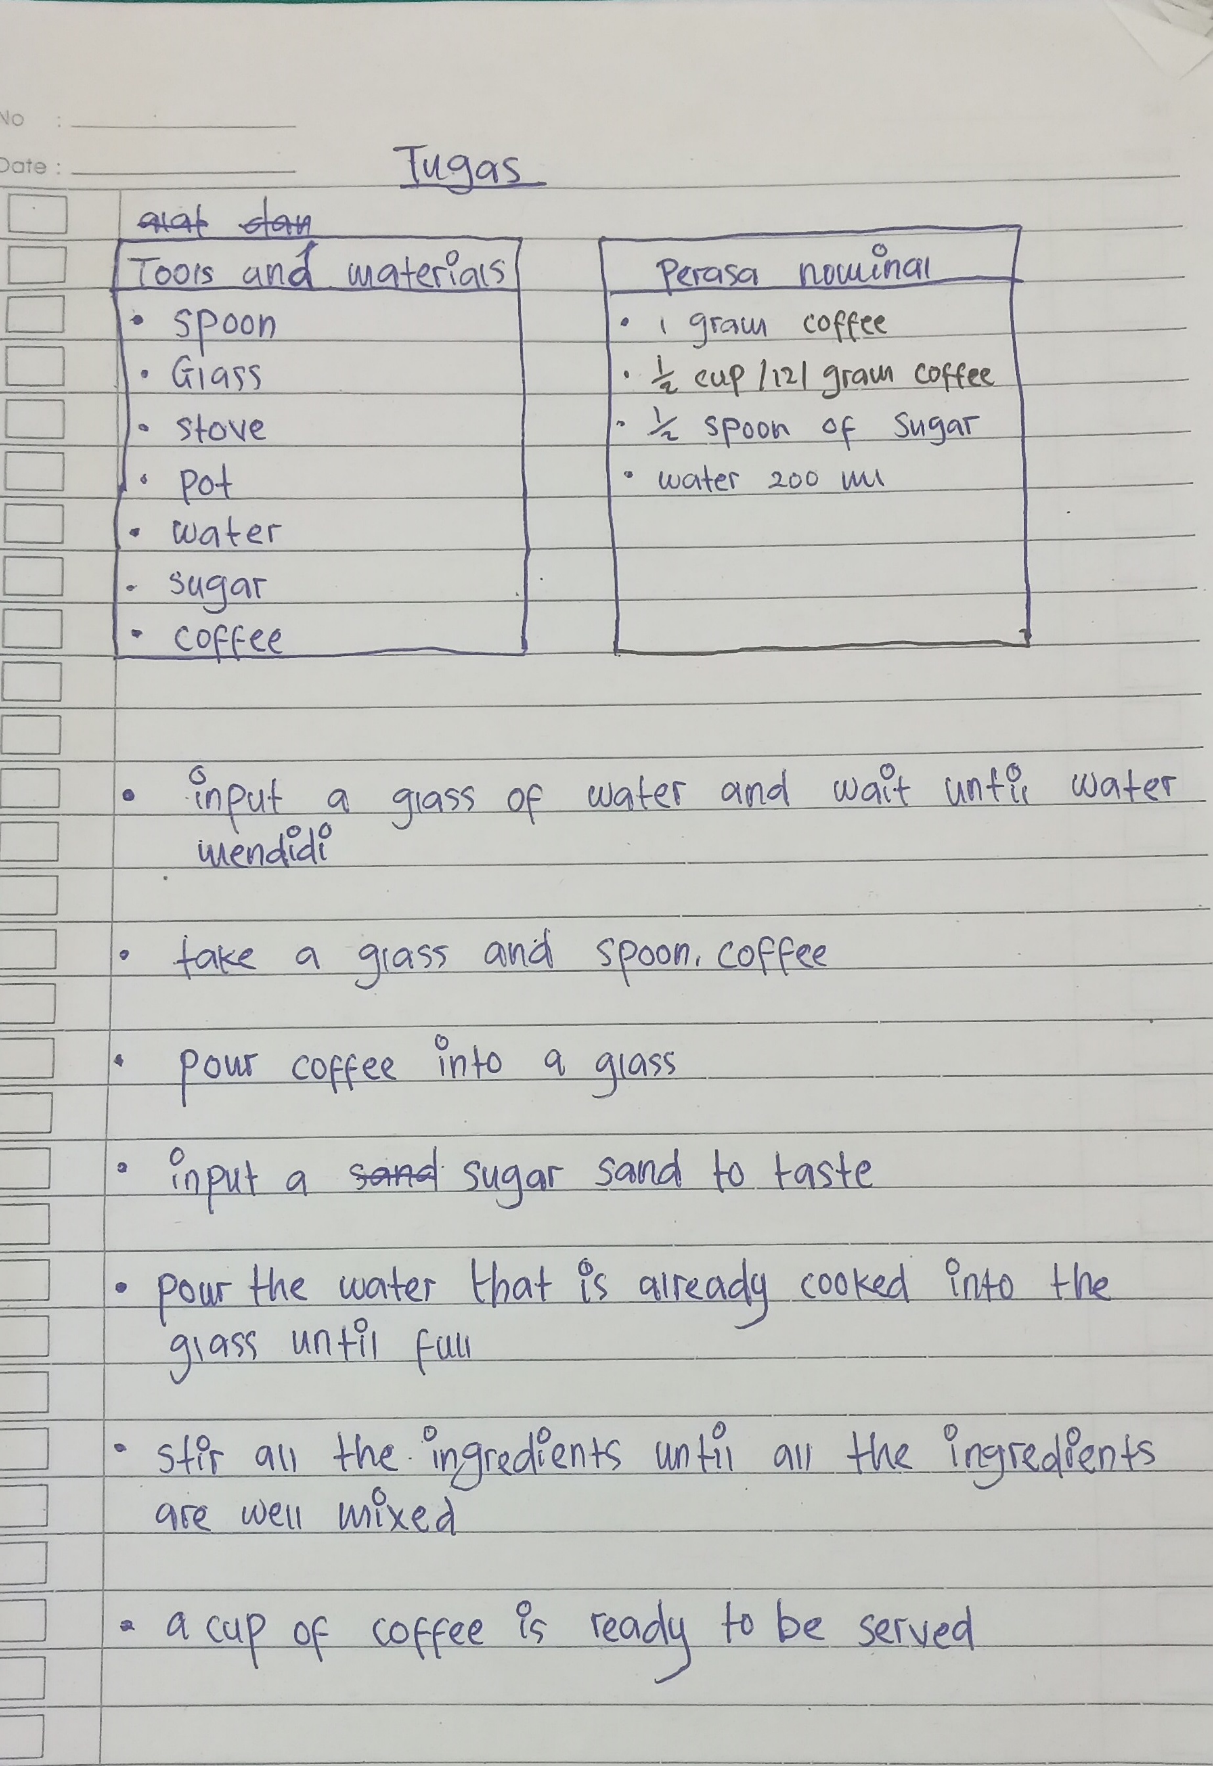 No :
Date :
Tugas
alat dan
Tools and materials
• spoon
• Glass
• stove
• pot
• water
• sugar
• coffee
Perasa nominal
• 1 gram coffee
• ½ cup /121 gram coffee
• ½ spoon of sugar
• water 200 ml
• input a glass of water and wait until water
mendidi
• take a glass and spoon, coffee
• pour coffee into a glass
• input a sand sugar sand to taste
• pour the water that is already cooked into the
glass until full
• stir all the ingredients until all the ingredients
are well mixed
• a cup of coffee is ready to be served